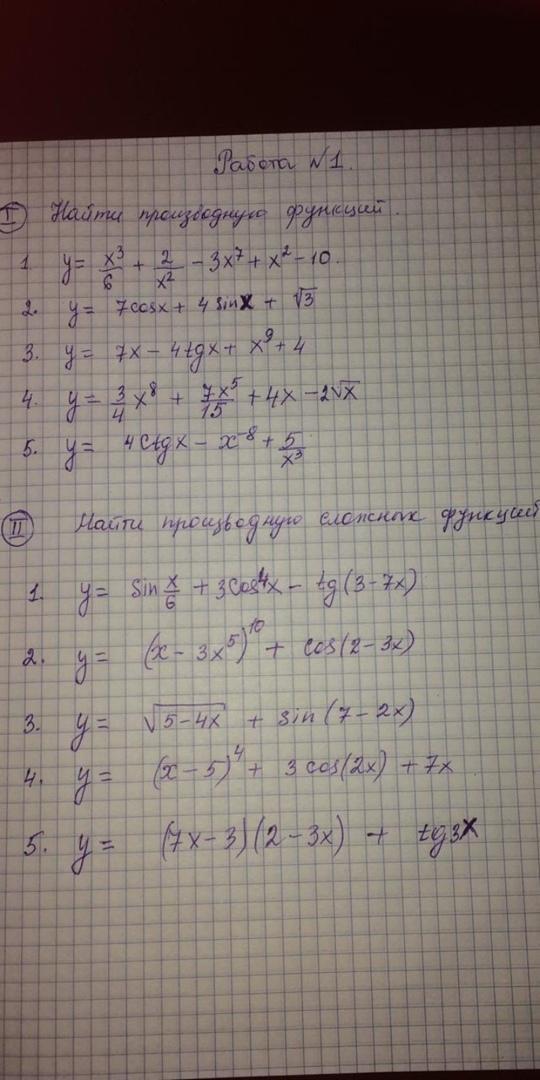 Работа №1.
I Найти производную функций.
1. y = x³/6 + 2/x² - 3x⁷ + x² - 10.
2. y = 7cosx + 4sinx + √3
3. y = 7x - 4tgx + x⁹ + 4
4. y = 3/4 x⁸ + 7x⁵/15 + 4x - 2√x
5. y = 4ctgx - x⁻⁸ + 5/x³
II Найти производную сложных функций
1. y = sin x/6 + 3cos4x - tg(3-7x)
2. y = (x - 3x⁵)¹⁰ + cos(2-3x)
3. y = √(5-4x) + sin(7-2x)
4. y = (x-5)⁴ + 3cos(2x) + 7x
5. y = (7x-3)(2-3x) + tg3x